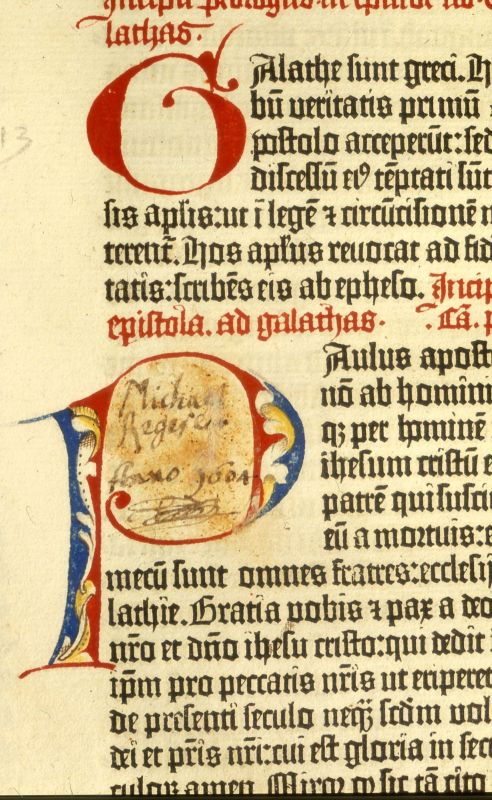 Incipit prologus in
lathas.
GAlathe sunt greci. H
bū veritatis primū
postolo acceperūt: sed
discessū eiꝰ tēptati sūt
sis aplis: ut ī legē ⁊ circūcisionē
terent̄. Hos aplus revocat ad fid
tatis: scribēs eis ab epheso. Incip
epistola. ad galathas. Ca. p
PAulus apost
nō ab homini
qȝ per hominē
ihesum cristū e
patrē qui susci
eū a mortuis: e
mecū sunt omnes fratres: ecclesij
lathie. Gratia vobis ⁊ pax a deo
nr̄o et dn̄o ihesu cristo: qui dedit
ip̄m pro peccatis nr̄is ut eriperet
de presenti seculo neqȝ scd̄m vol
dei et pr̄is nr̄i: cui est gloria in sec
culoꝝ amen. Miroꝛ qꝫ sic tā cito
Michael
Anno 1604
13